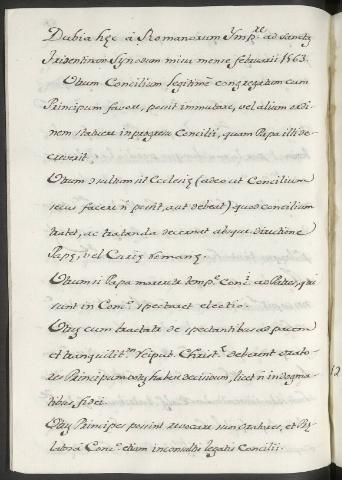 Dubia hęc á Romanorum Ymp.re ad Sanctę
Tridentinam Synodum missi mense februarii 1563.
Utrum Concilium legitime congregatum cum
Principum favore, possit immutare, vel alium ordi-
nem statuere in progressu Concilii, quam Papa ille de-
creverit.
Utrum sit Ecclesię (adeo ut Concilium
secus facere ñ possit, aut debeat) quod concilium
tractet, ac tractanda decernat absque directione
Papę, vel Curię romanę.
Utrum si Papa moreretur temp.e Conc.i ad Patres, qui
sunt in Conc.o spectaret electio.
Utrum cum tractatur de spectantibus ad pacem
et tranquilit.m Reipub. Christ.ę deberent orato-
res Principum habere decisivum, licet ñ in dogma-
tibus fidei.
Principes possint revocare suos oratores, et Prę-
latos á Conc.o etiam inconsultis legatis Concilii.
12